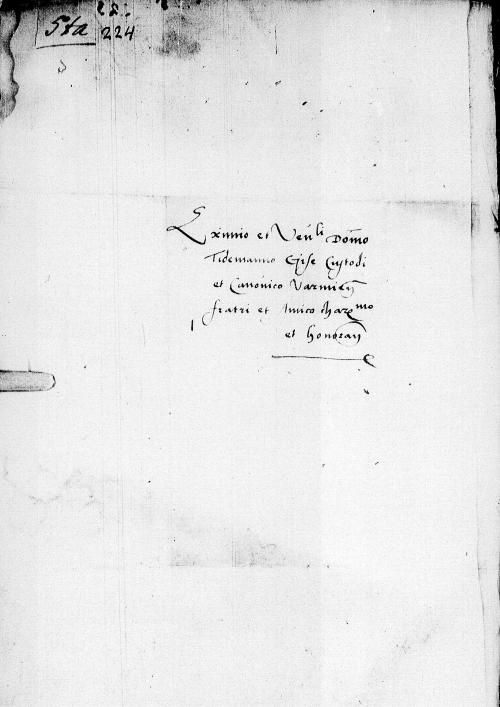 28.
5ta 224
Eximio et Ven[li] Domo
Tidemanno Gise Custodi
et Canonico Varmien
fratri et Amico charmo
et honoran